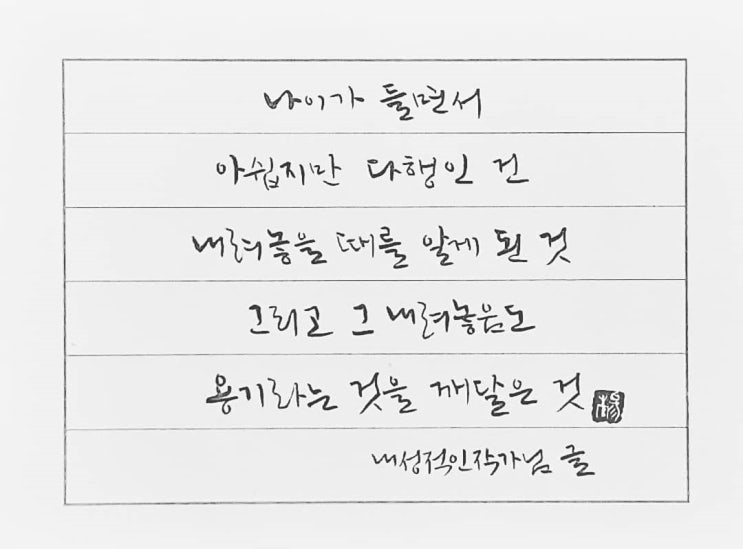 나이가 들면서
아쉽지만 다행인 건
내려놓을 때를 알게 된 것
그리고 그 내려놓음도
용기라는 것을 깨달은 것
내성적인작가님 글